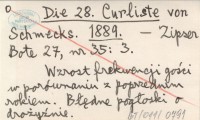 Die 28. Curliste von
Schmecks. 1889. — Zipser
Bote 27, nr 35: 3.
Wzrost frekwencji gości
w porównaniu z poprzednim
rokiem. Błędne pogłoski o
drożyźnie.